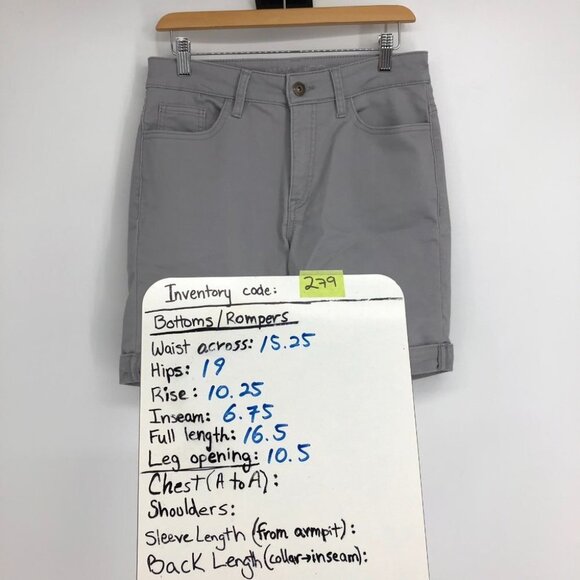 Inventory code: 279
Bottoms/Rompers
Waist across: 15.25
Hips: 19
Rise: 10.25
Inseam: 6.75
Full length: 16.5
Leg opening: 10.5
Chest (A to A):
Shoulders:
Sleeve Length (from armpit):
Back Length (collar→inseam):